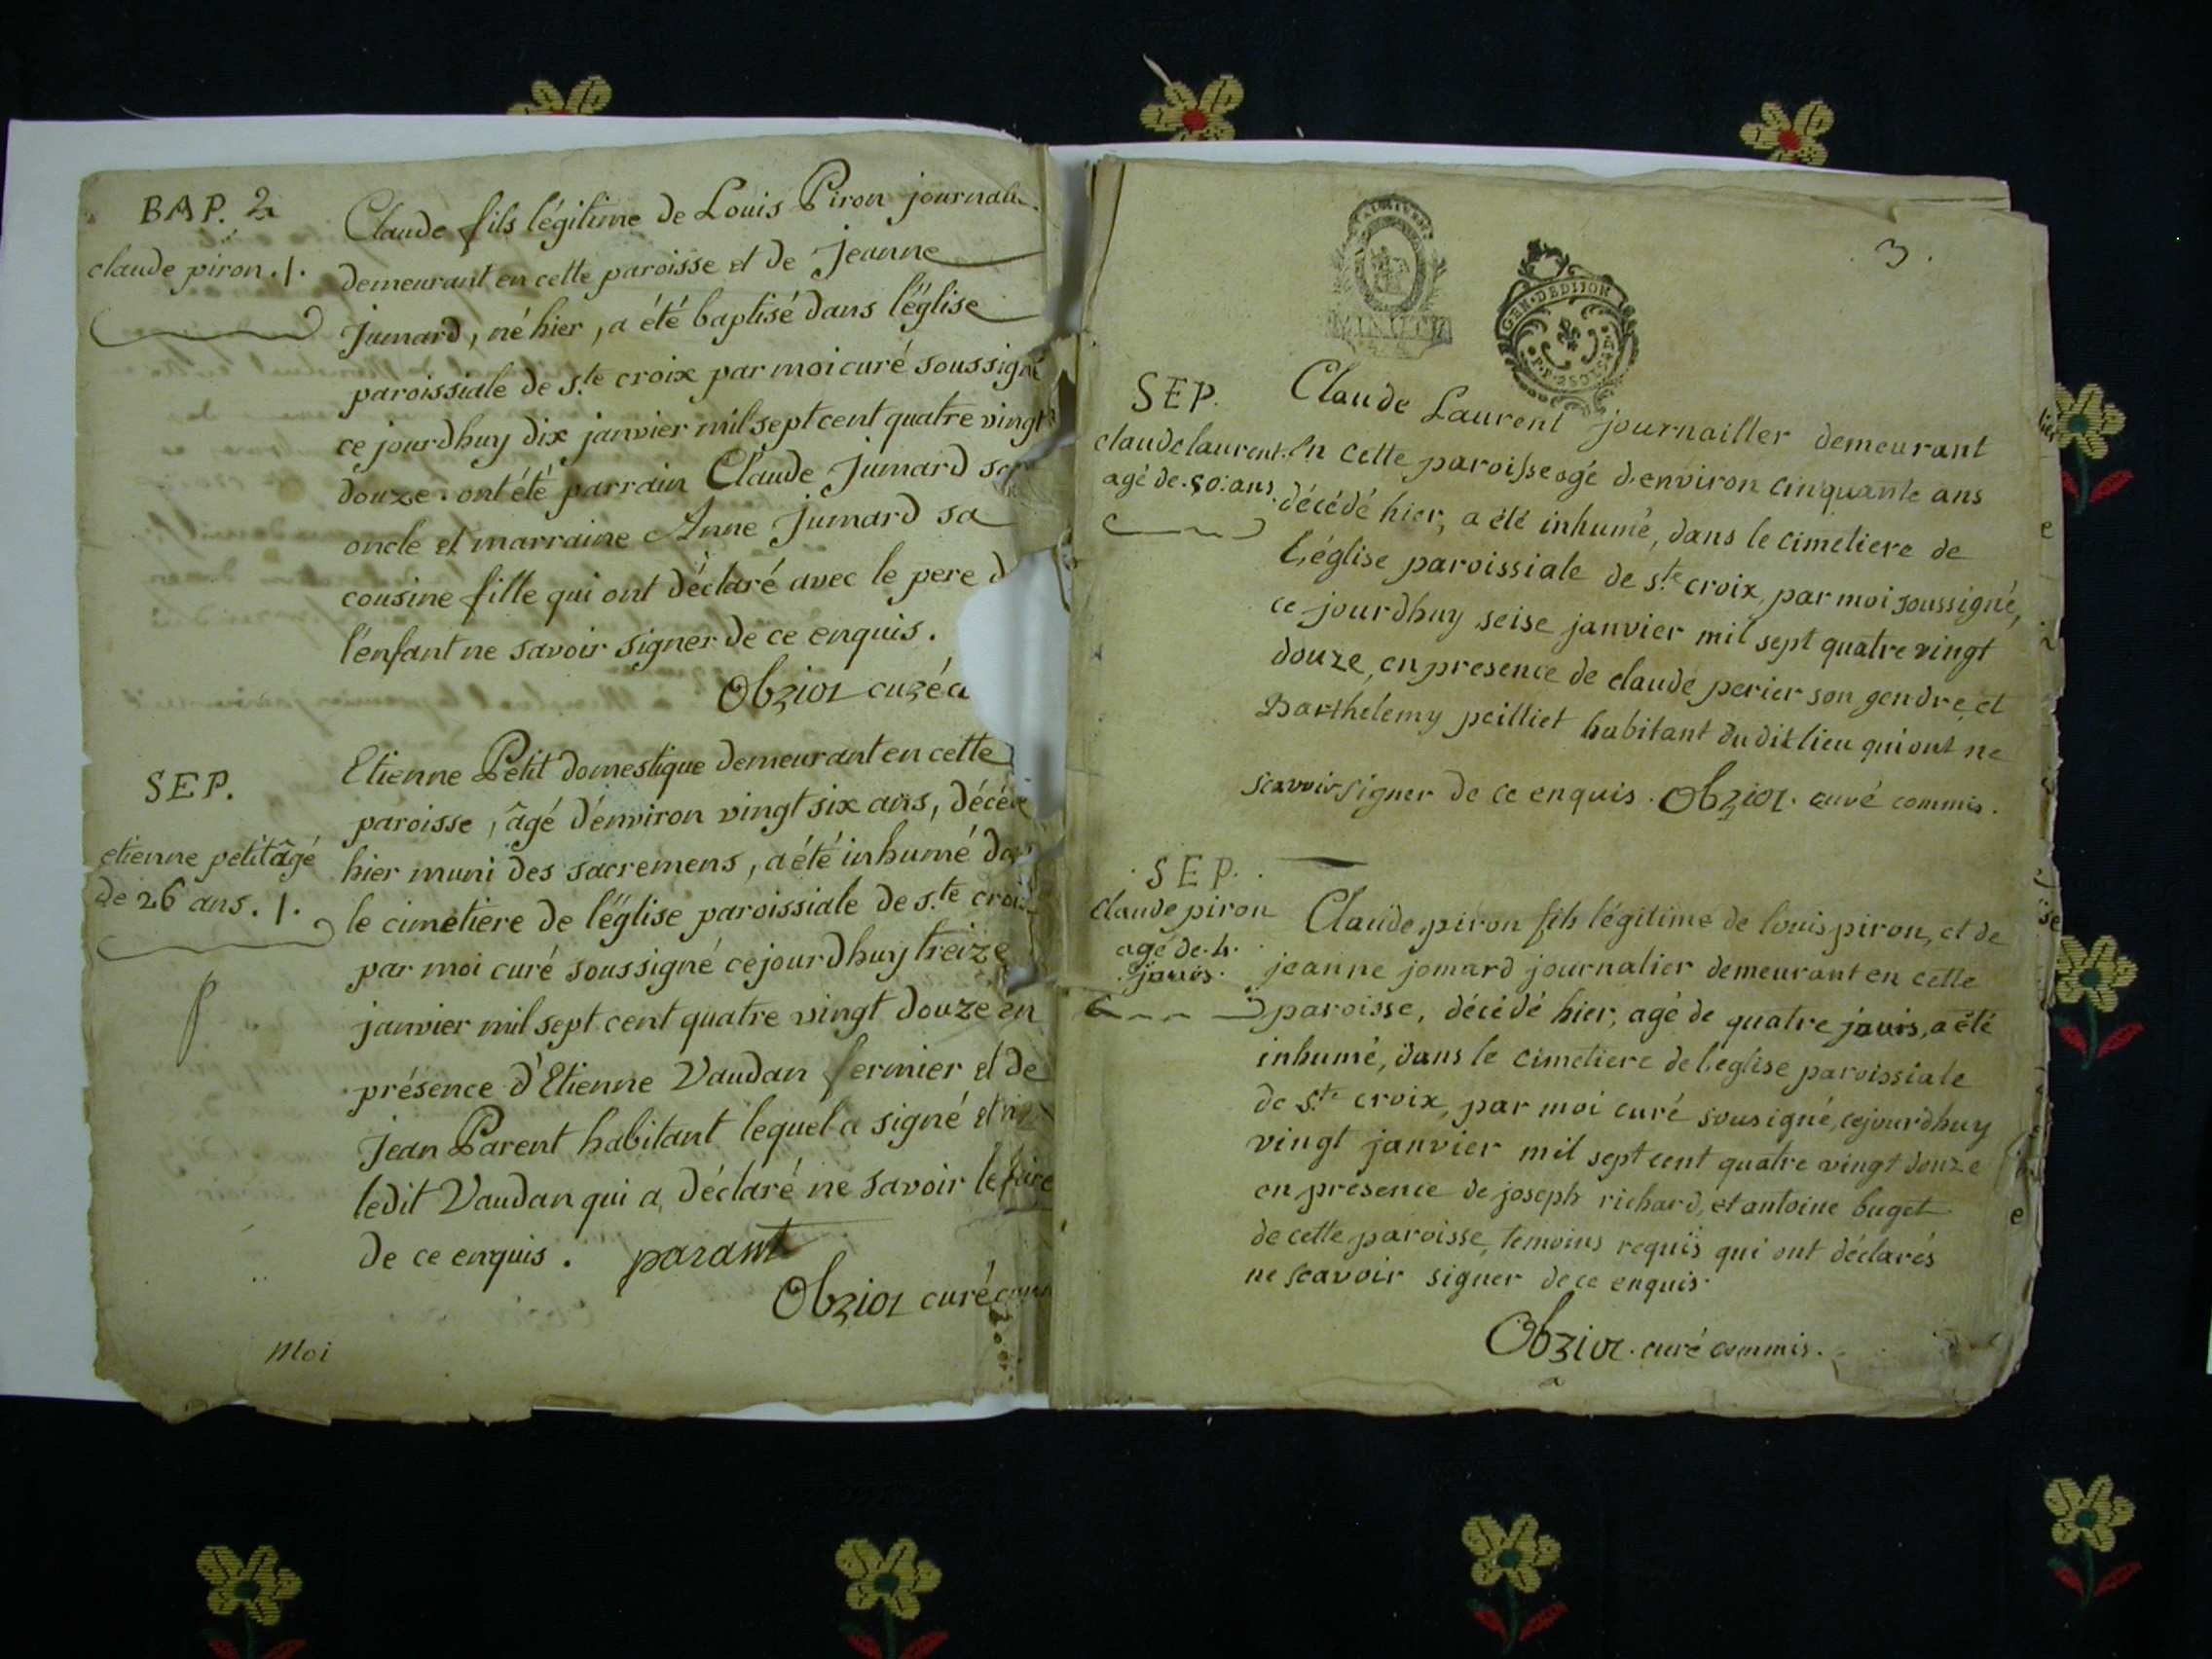 BAP. 2
claude piron . 1 .
Claude fils légitime de Louis Piron journali
demeurant en cette paroisse et de Jeanne
Jumard, né hier, a été baptisé dans l'église
paroissiale de s.te croix par moi curé soussigné
ce jourdhuy dix janvier mil sept cent quatre vingt
douze. ont été parrain Claude Jumard son
oncle et marraine Anne Jumard sa
cousine fille qui ont déclaré avec le pere d
l'enfant ne savoir signer de ce enquis.
Obrior curé c
SEP.
etienne petit âgé
de 26 ans. 1.
Etienne Petit domestique demeurant en cette
paroisse, âgé d'environ vingt six ans, décédé
hier muni des sacremens, a été inhumé dans
le cimetiere de l'église paroissiale de s.te croix
par moi curé soussigné cejourdhuy treize
janvier mil sept cent quatre vingt douze en
présence d'Etienne Vaudan fermier et de
Jean Parent habitant lequel a signé et
ledit Vaudan qui a déclaré ne savoir le faire
de ce enquis. parant
Obrior curé comm
Moi
3.
MINUTE
GEN. DE DIJON
SEP.
claude laurent
agé de . 50 . ans
Claude Laurent journailler demeurant
en cette paroisse agé d'environ cinquante ans
décédé hier, a été inhumé, dans le cimetiere de
L'église paroissiale de s.te croix, par moi soussigné,
ce jourdhuy seise janvier mil sept quatre vingt
douze, en presence de claude perier son gendre, et
Barthelemy peilliet habitant du dit lieu qui ont ne
scavoir signer de ce enquis. Obrior. curé commis.
. SEP. .
Claude piron
agé de . 4 .
. jours .
Claude piron fils légitime de louis piron, et de
jeanne jomard journalier demeurant en cette
paroisse, décédé hier, agé de quatre jours, a été
inhumé, dans le cimetiere de l'eglise paroissiale
de s.te croix, par moi curé sousigné, cejourdhuy
vingt janvier mil sept cent quatre vingt douze
en presence de joseph richard, et antoine buget
de cette paroisse, temoins requis qui ont déclarés
ne scavoir signer de ce enquis.
Obrior. curé commis.